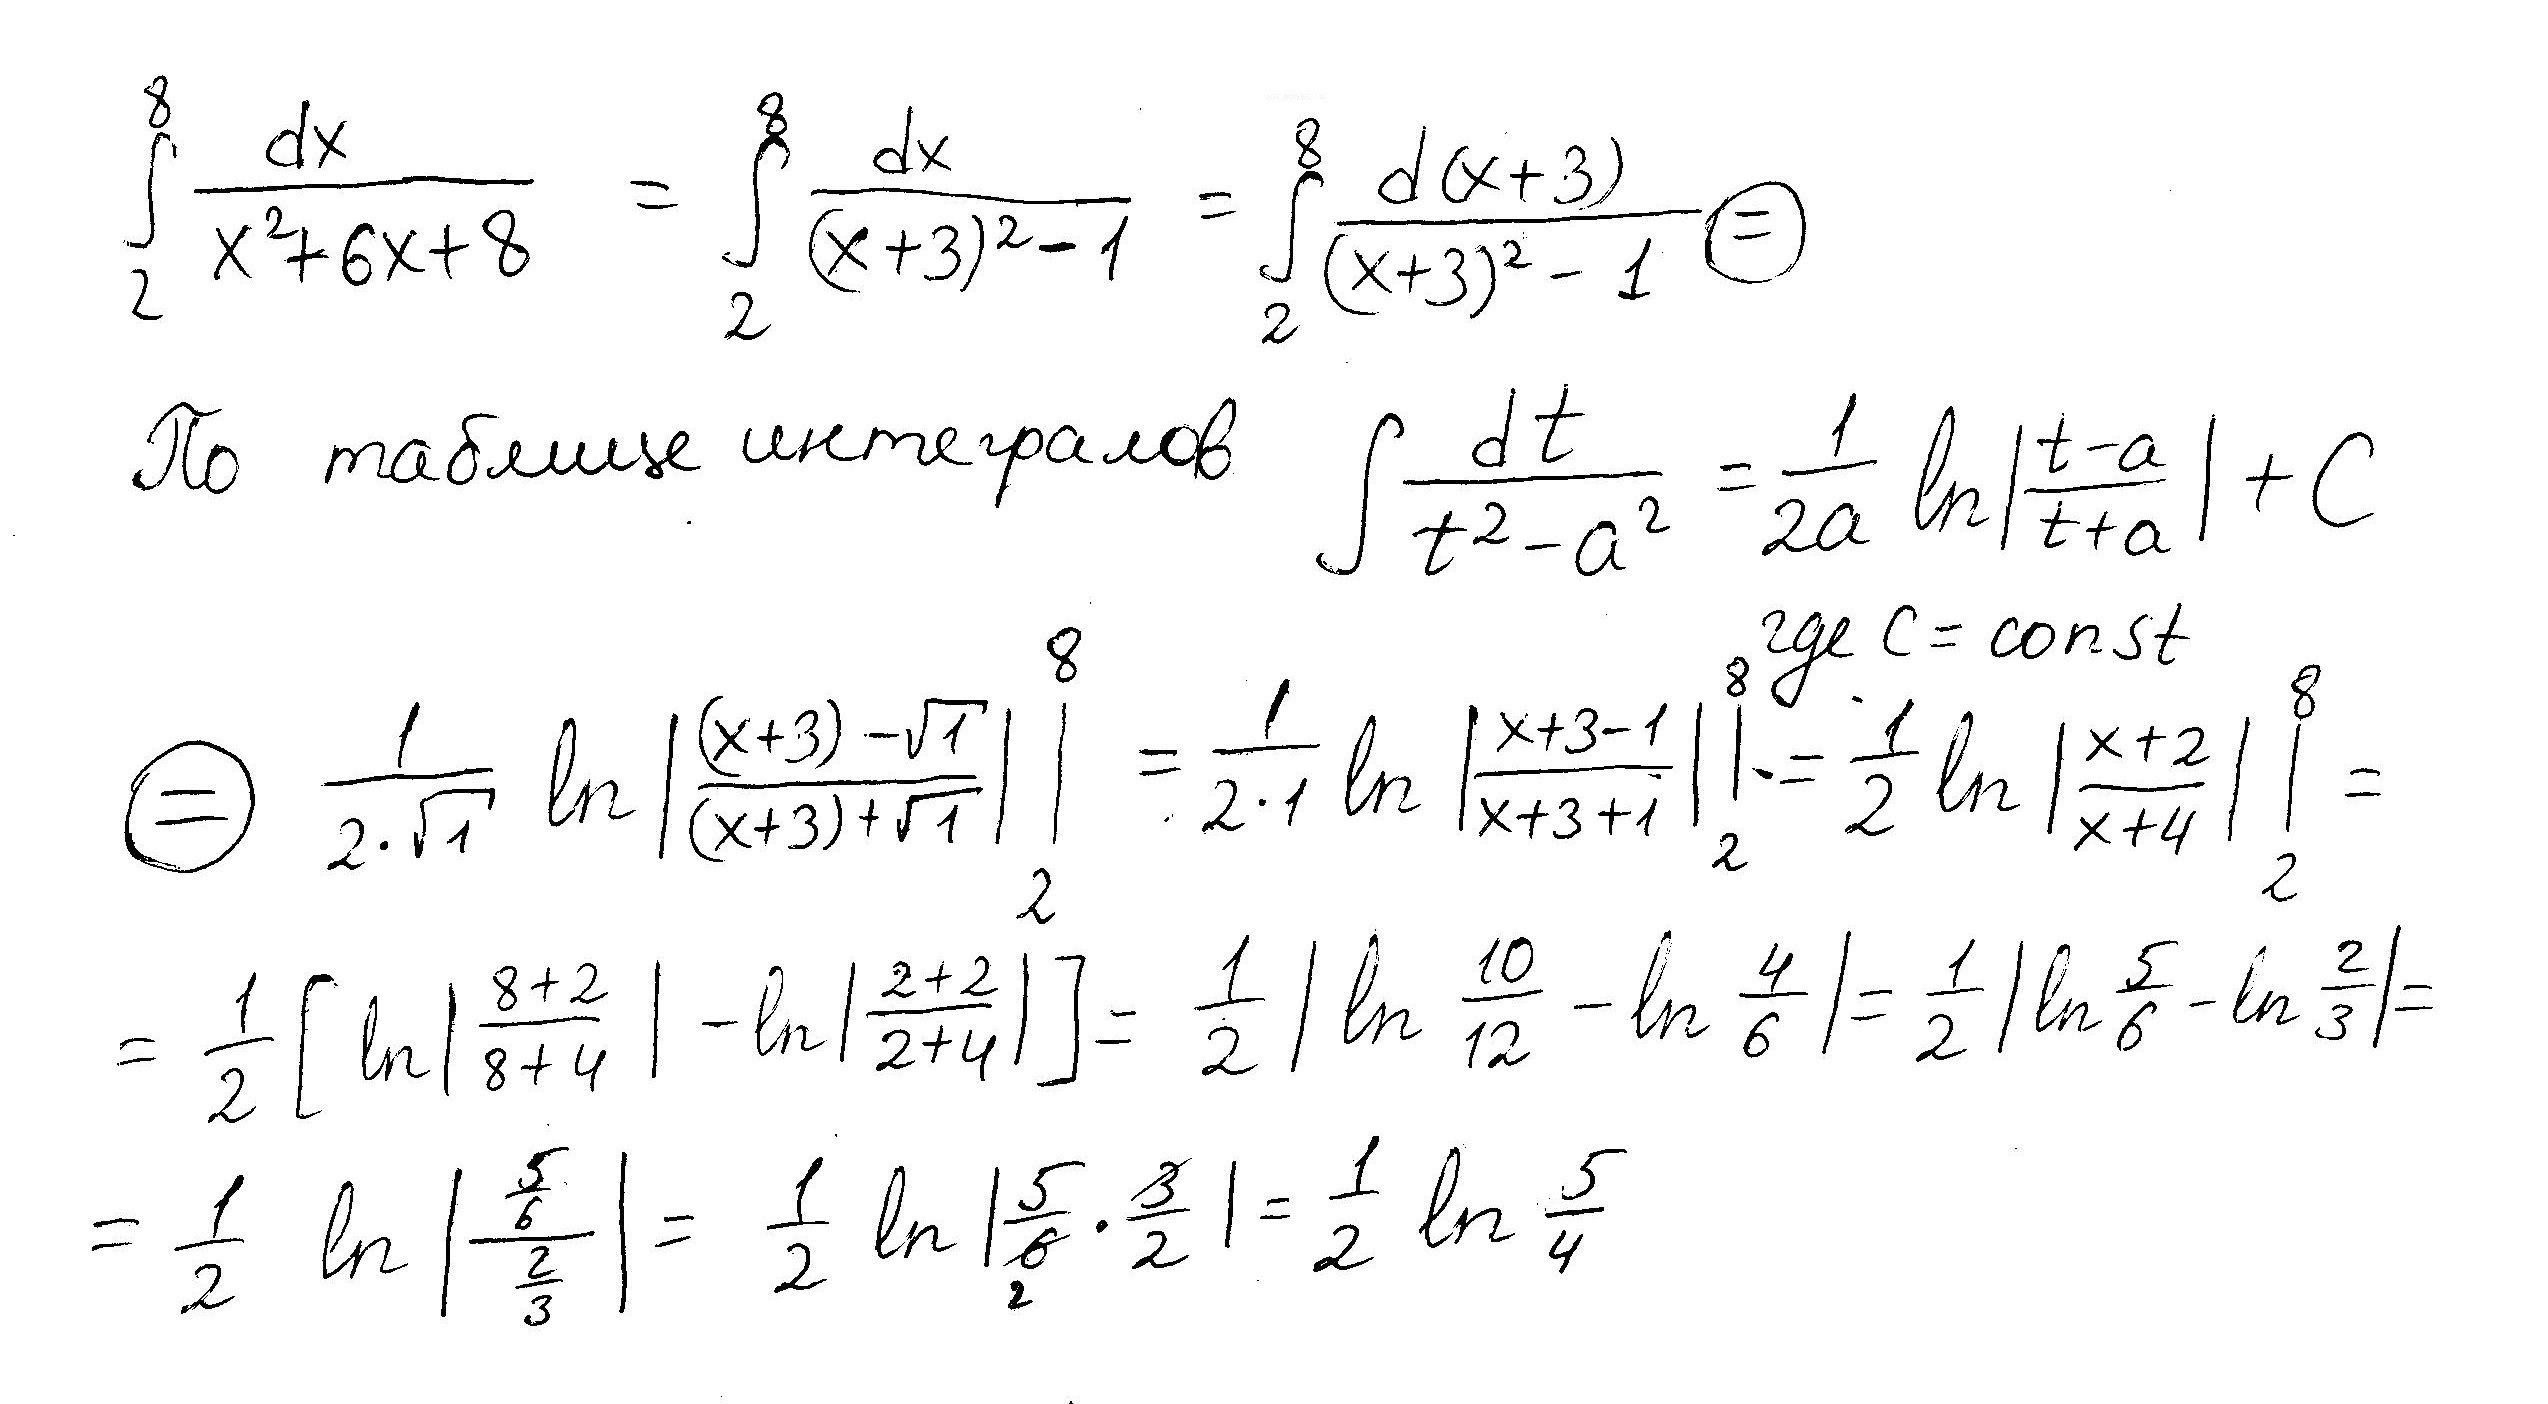 ∫₂⁸ dx/(x²+6x+8) = ∫₂⁸ dx/((x+3)²-1) = ∫₂⁸ d(x+3)/((x+3)²-1) ⊜
По таблице интегралов ∫ dt/(t²-a²) = 1/(2a) ln|(t-a)/(t+a)| + C
где C = const
⊜ 1/(2·√1) ln|((x+3)-√1)/((x+3)+√1)| |₂⁸ = 1/(2·1) ln|(x+3-1)/(x+3+1)| |₂⁸ = 1/2 ln|(x+2)/(x+4)| |₂⁸ =
= 1/2 [ln|(8+2)/(8+4)| - ln|(2+2)/(2+4)|] = 1/2 |ln 10/12 - ln 4/6| = 1/2 |ln 5/6 - ln 2/3| =
= 1/2 ln|(5/6)/(2/3)| = 1/2 ln|5/6 · 3/2| = 1/2 ln 5/4
2